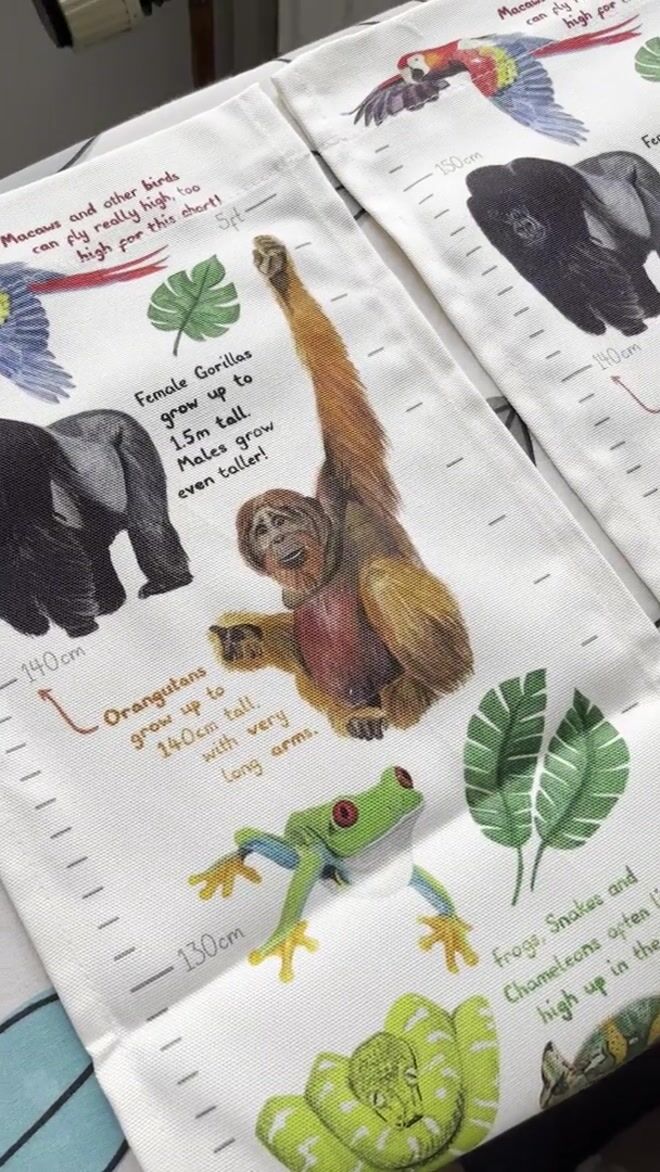 Macaws and other birds
can fly really high, too
high for this chart!
5ft
Female Gorillas
grow up to
1.5m tall.
Males grow
even taller!
140cm
Orangutans
grow up to
140cm tall.
with very
long arms.
130cm
Frogs, Snakes and
Chameleons often
high up in the
Macaws
can fly
high for
150cm
140cm